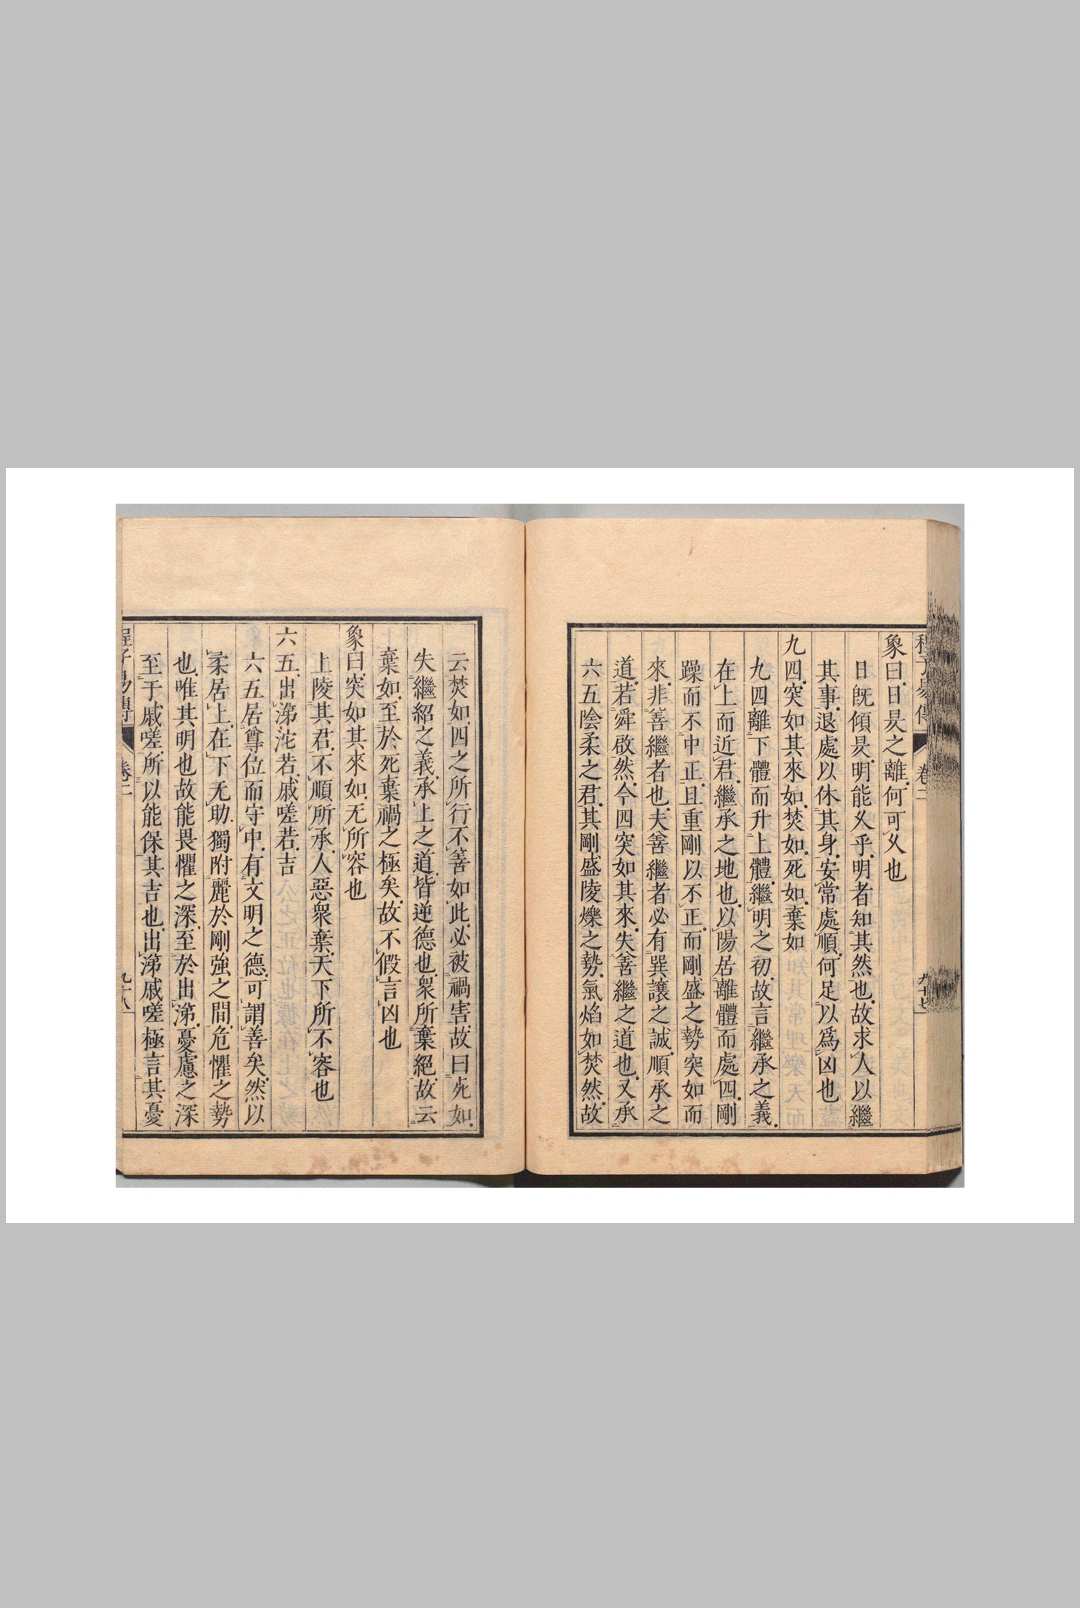 象曰日昃之離何可久也
日旣傾昃明能久乎明者知其然也故求人以繼
其事退處以休其身安常處順何足以爲凶也
九四突如其來如焚如死如棄如
九四離下體而升上體繼明之初故言繼承之義
在上而近君繼承之地也以陽居離體而處四剛
躁而不中正且重剛以不正而剛盛之勢突如而
來非善繼者也夫善繼者必有巽讓之誠順承之
道若舜啟然今四突如其來失善繼之道也又承
六五陰柔之君其剛盛陵爍之勢氣焰如焚然故
云焚如四之所行不善如此必被禍害故曰死如
失繼紹之義承上之道皆逆德也衆所棄絕故云
棄如至於死棄禍之極矣故不假言凶也
象曰突如其來如无所容也
上陵其君不順所承人惡衆棄天下所不容也
六五出涕沱若戚嗟若吉
六五居尊位而守中有文明之德可謂善矣然以
柔居上在下无助獨附麗於剛強之間危懼之勢
也唯其明也故能畏懼之深至於出涕憂慮之深
至于戚嗟所以能保其吉也出涕戚嗟極言其憂
程子易傳 卷二 九十八